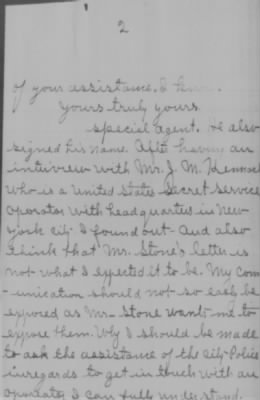 2
of your assistance. I
Yours truly yours
special agent. He also
signed his name. After having an
intirview with Mr. J. M.
who is a United States Secret Service
oporator with headquarties in New
York City I found out - And also
think that Mr. Stone's letter is
not what I expected it to be. My com
-unication should not so easly be
exposed as Mr - Stone wants me to
expose them. Why I should be made
to ask the assistance of the City Police
inregards to get in touch with an
oporator I can fully understand.